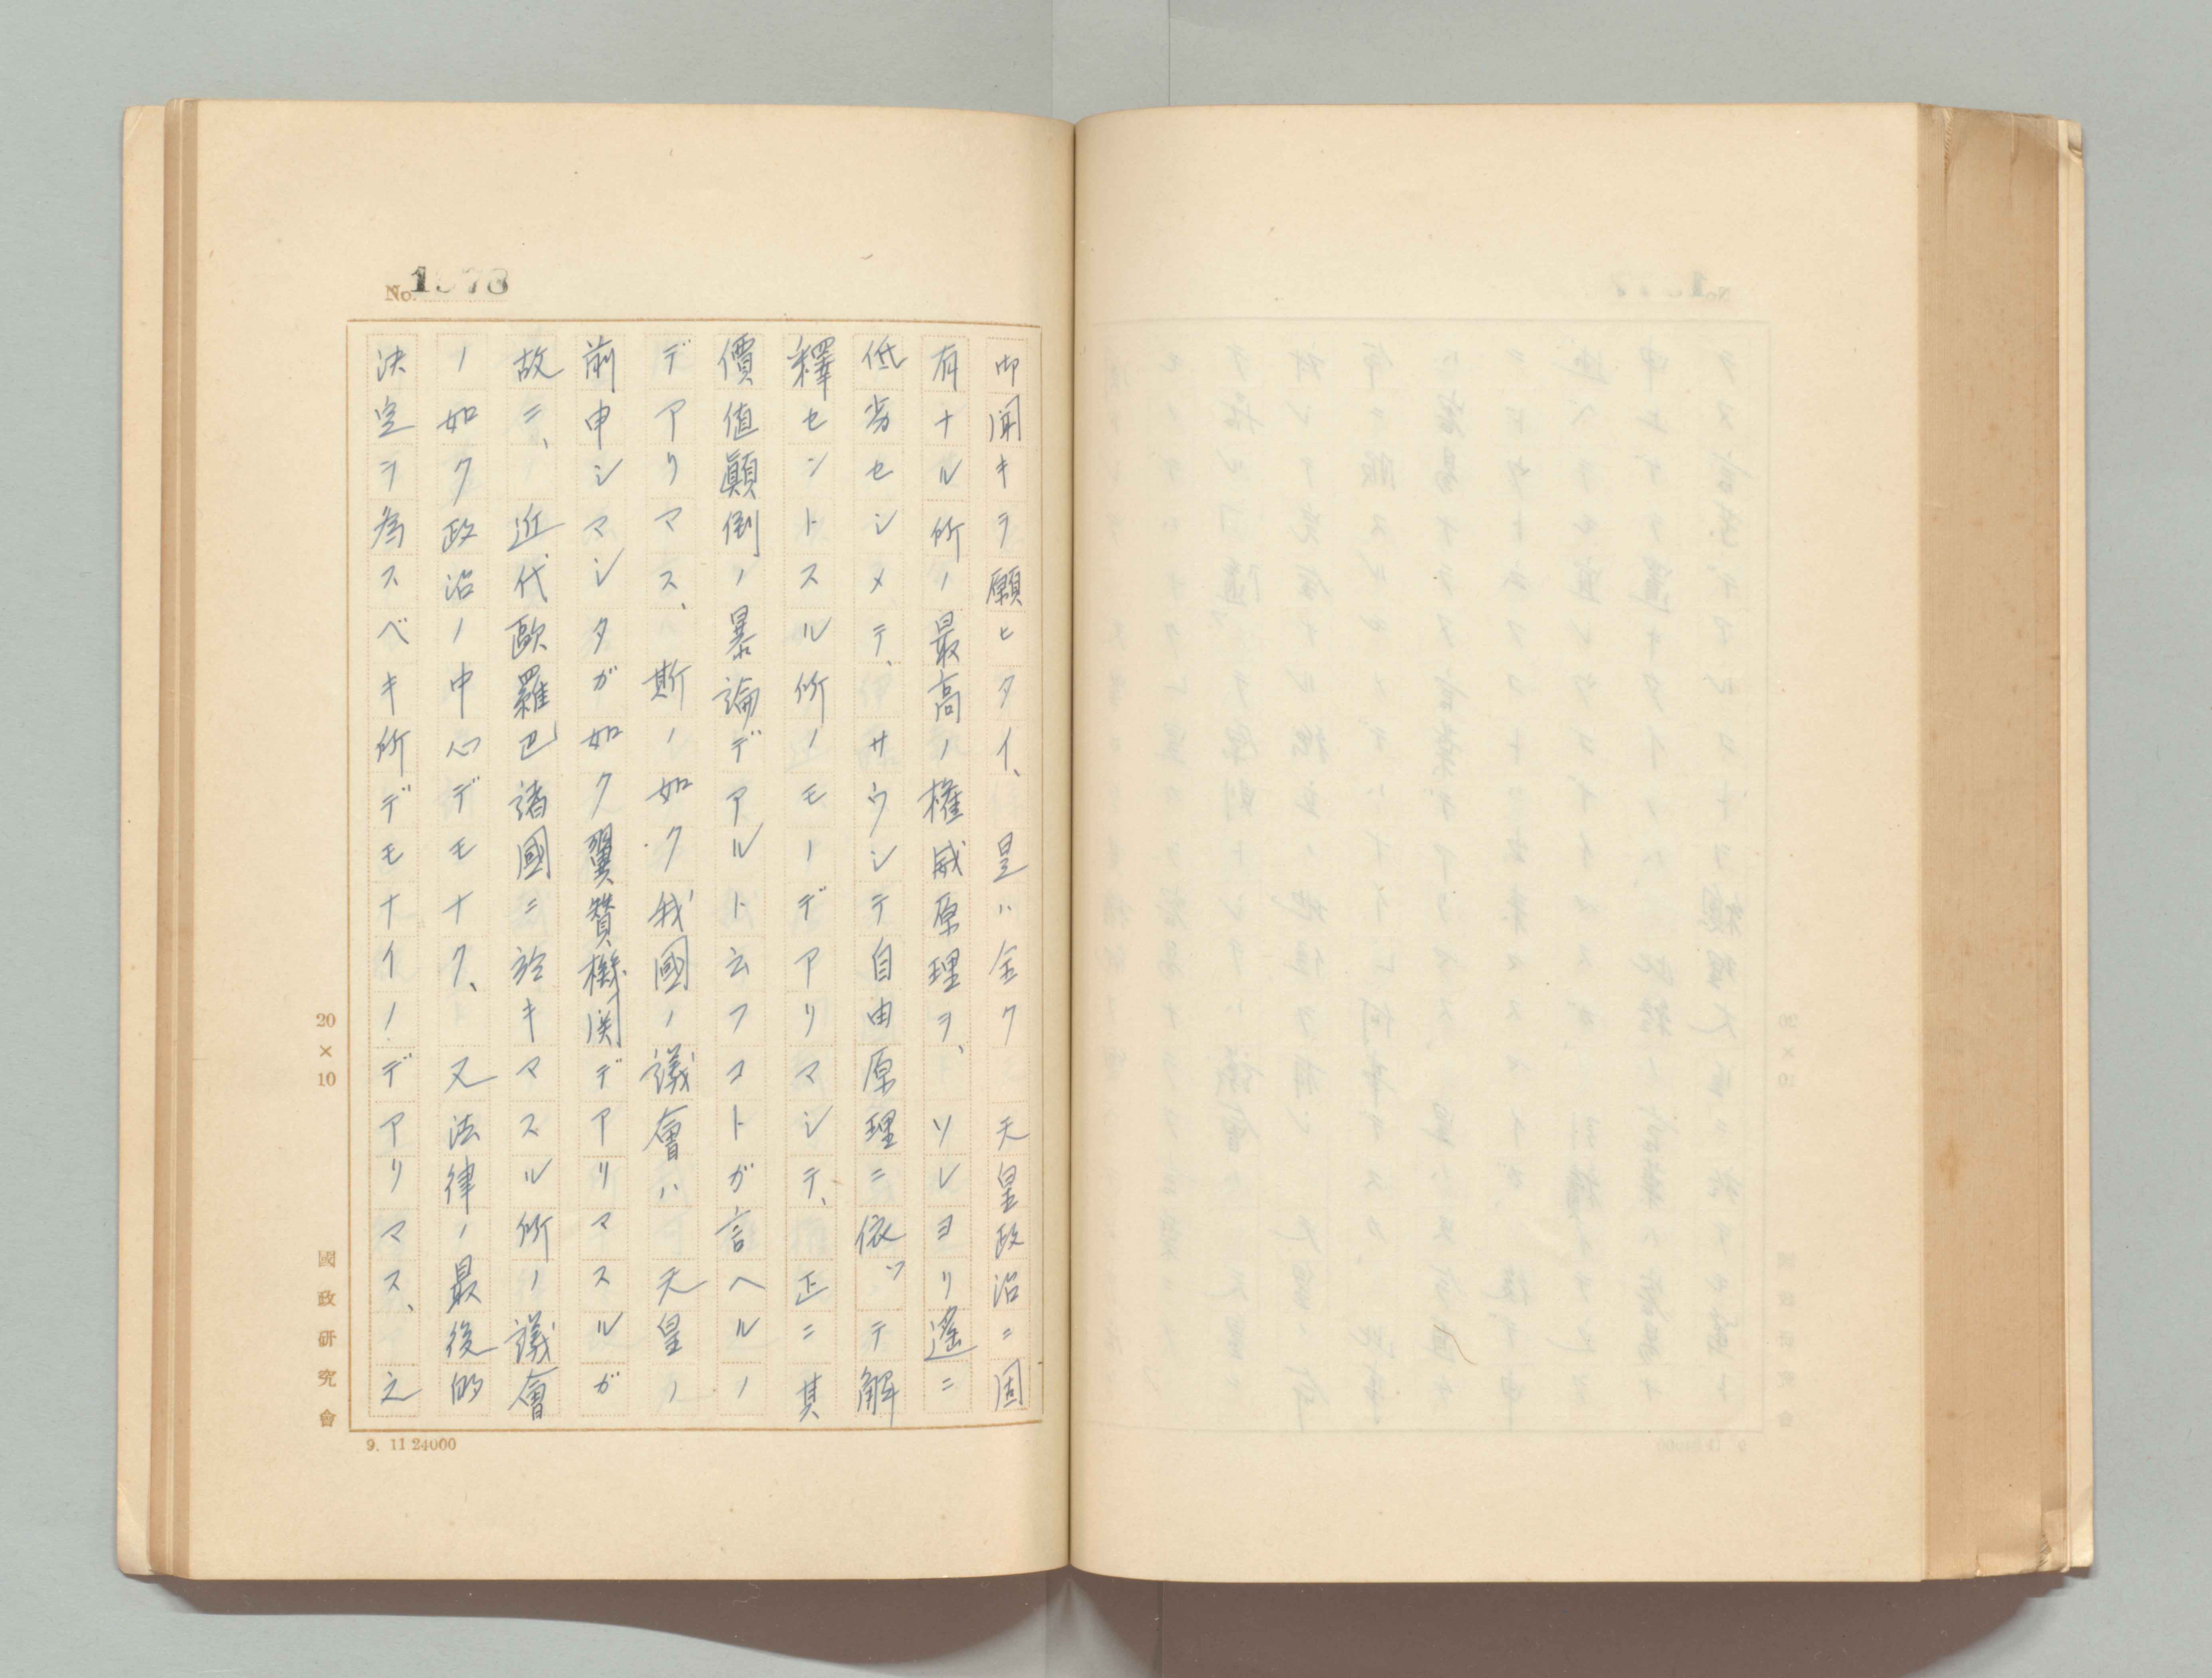 No. 1973
御聞キヲ願ヒタイ、是ハ全ク　天皇政治ニ固
有ナル所ノ最高ノ權威原理ヲ、ソレヨリ遙ニ
低劣セシメテ、サウシテ自由原理ニ依ッテ解
釋セントスル所ノモノデアリマシテ、正ニ其
價値顚倒ノ暴論デアルト云フコトガ言ヘルノ
デアリマス、斯ノ如ク我國ノ議會ハ　天皇ノ
前申シマシタガ如ク翼贊機関デアリマスルガ
故ニ、近代歐羅巴諸國ニ於キマスル所ノ議會
ノ如ク政治ノ中心デモナク、又法律ノ最後的
決定ヲ為スベキ所デモナイノデアリマス、之
20×10
國政研究會
9. 11 24000